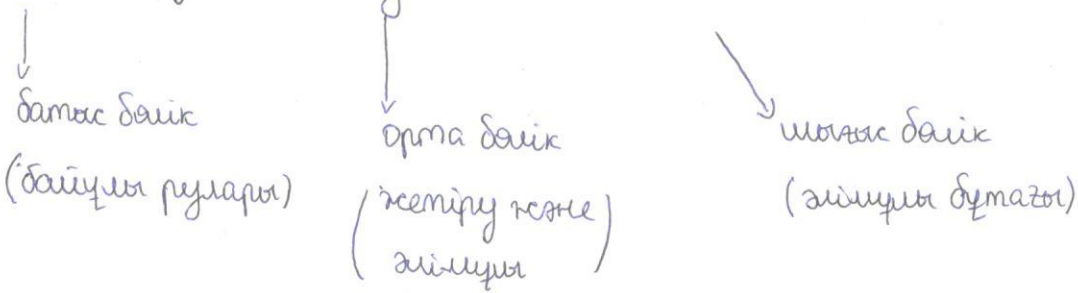 батыс бөлік
(байұлы рулары)
орта бөлік
(жетіру және
әлімұлы)
шығыс бөлік
(әлімұлы бұтағы)